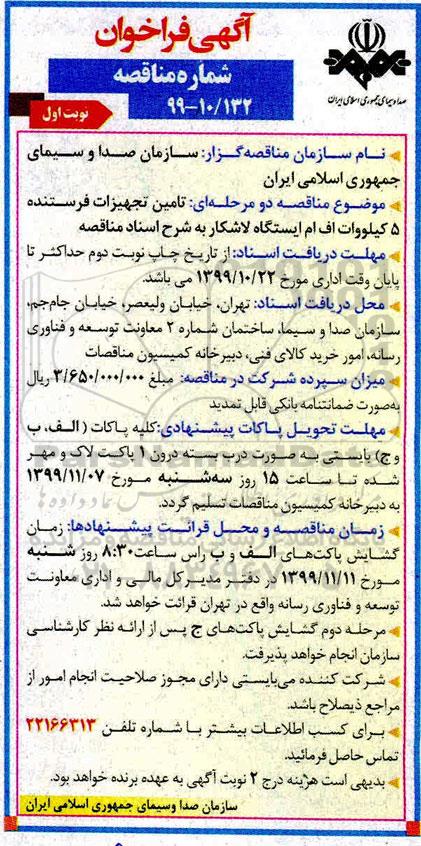 آگهی فراخوان
شماره مناقصه
۹۹-۱۰/۱۳۲
نوبت اول
صدا و سیمای جمهوری اسلامی ایران
نام سازمان مناقصه‌گزار: سازمان صدا و سیمای
جمهوری اسلامی ایران
موضوع مناقصه دو مرحله‌ای: تامین تجهیزات فرستنده
۵ کیلووات اف ام ایستگاه لاشکار به شرح اسناد مناقصه
مهلت دریافت اسناد: از تاریخ چاپ نوبت دوم حداکثر تا
پایان وقت اداری مورخ ۱۳۹۹/۱۰/۲۲ می باشد.
محل دریافت اسناد: تهران، خیابان ولیعصر، خیابان جام‌جم،
سازمان صدا و سیما، ساختمان شماره ۲ معاونت توسعه و فناوری
رسانه، امور خرید کالای فنی، دبیرخانه کمیسیون مناقصات
میزان سپرده شرکت در مناقصه: مبلغ ۳/۶۵۰/۰۰۰/۰۰۰ ریال
به‌صورت ضمانتنامه بانکی قابل تمدید
مهلت تحویل پاکات پیشنهادی: کلیه پاکات (الف، ب
و ج) بایستی به صورت درب بسته درون ۱ پاکت لاک و مهر
شده تا ساعت ۱۵ روز سه‌شنبه مورخ ۱۳۹۹/۱۱/۰۷
به دبیرخانه کمیسیون مناقصات تسلیم گردد.
زمان مناقصه و محل قرائت پیشنهادها: زمان
گشایش پاکت‌های الف و ب راس ساعت ۸:۳۰ روز شنبه
مورخ ۱۳۹۹/۱۱/۱۱ در دفتر مدیرکل مالی و اداری معاونت
توسعه و فناوری رسانه واقع در تهران قرائت خواهد شد.
مرحله دوم گشایش پاکت‌های ج پس از ارائه نظر کارشناسی
سازمان انجام خواهد پذیرفت.
شرکت کننده می‌بایستی دارای مجوز صلاحیت انجام امور از
مراجع ذیصلاح باشد.
برای کسب اطلاعات بیشتر با شماره تلفن ۲۲۱۶۶۳۱۳
تماس حاصل فرمائید.
بدیهی است هزینه درج ۲ نوبت آگهی به عهده برنده خواهد بود.
سازمان صدا و سیمای جمهوری اسلامی ایران